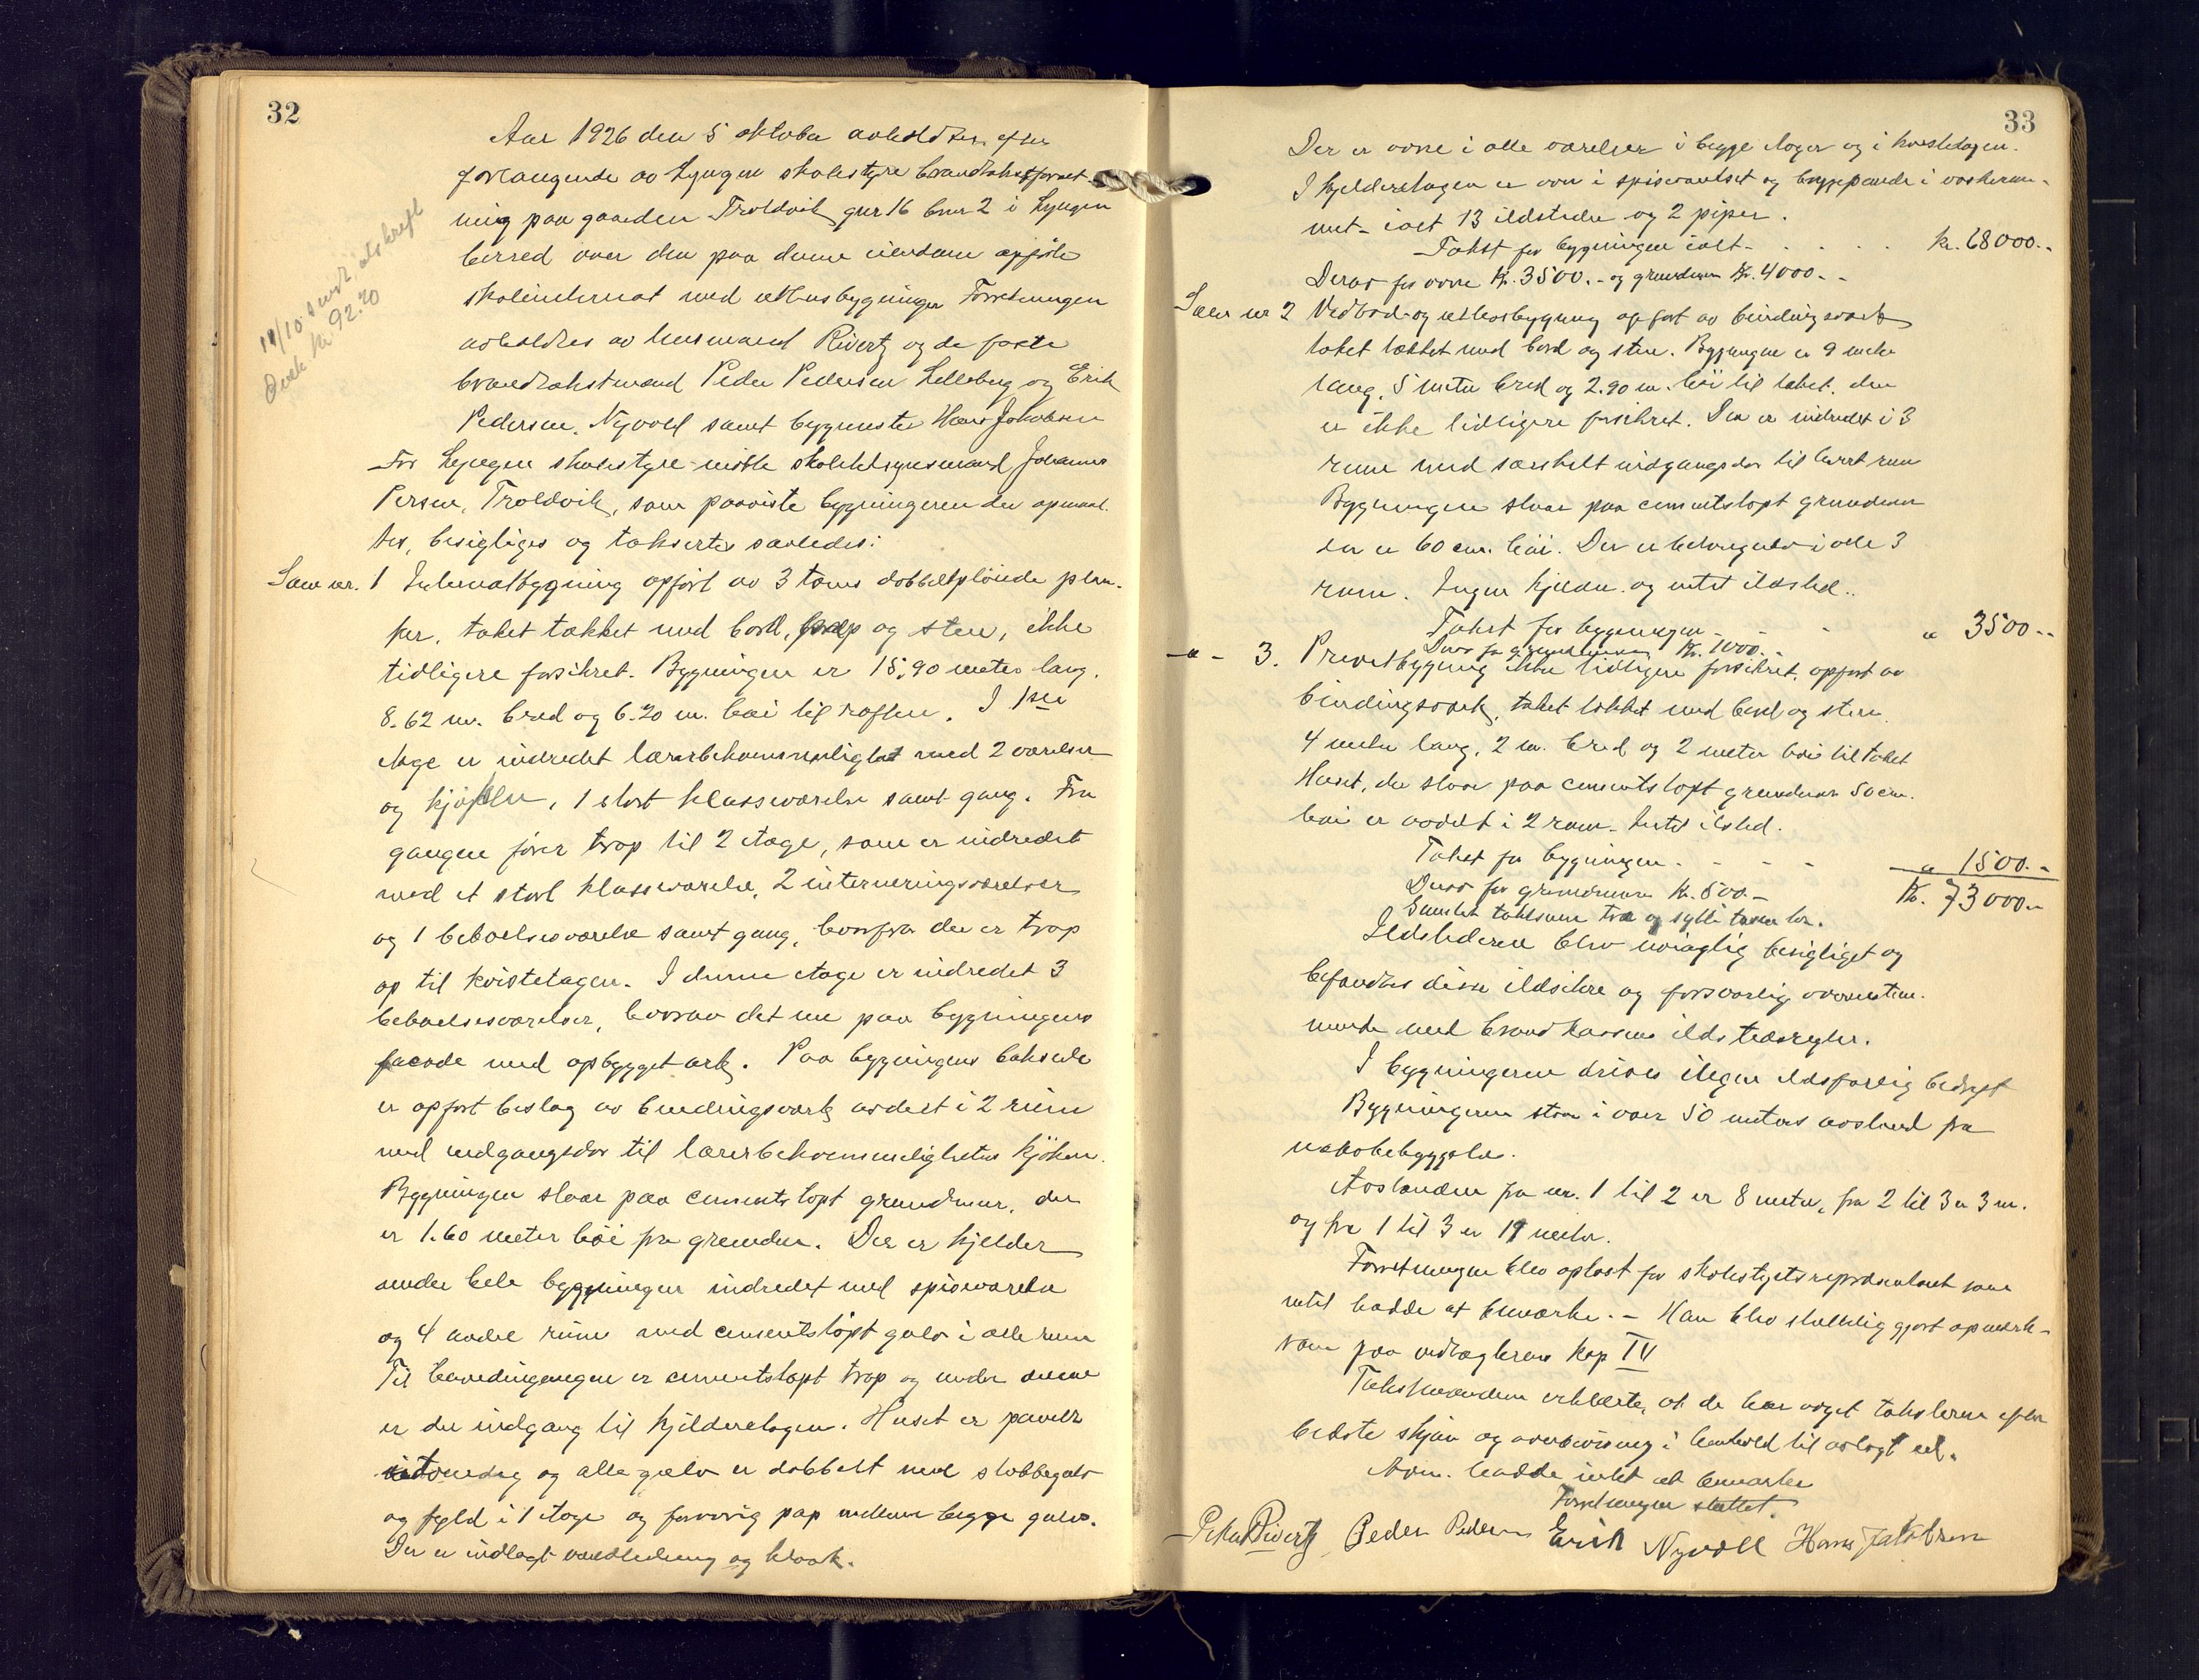 32
Aar 1926 den 5 oktober avholdtes efter
forlangende av Lyngen skolestyre brandtakstforret-
ning paa gaarden Troldvik gnr 16 bnr 2 i Lyngen
herred over den paa denne eiendom opførte
skoleinternat med uthusbygninger Forretningen
avholdtes av lensmand Rivertz og de faste
brandtakstmænd Peder Pedersen Lelleberg og Erik
Pedersen Nyvold samt bygmester Hans Jakobsen
For Lyngen skolestyre møtte skoletilsynsmand Johannes
Persen, Troldvik, som paaviste bygningerne der opmaal-
tes, besigtiges og taksertes saaledes:
Løse nr. 1 Internatbygning opført av 3 toms dobbeltpløiede plan-
ker, taket tækket med bord, pap og sten, ikke
tidligere forsikret. Bygningen er 15,90 meter lang,
8.62 m. bred og 6.20 m. høi til røften. I 1ste
etage er indredet lærerbekvemmelighet med 2 værelser
og kjøkken, 1 stort klasseværelse samt gang. Fra
gangen fører trap til 2 etage, som er indredet
med et stort klasseværelse, 2 interneringsværelser
og 1 beboelsesværelse samt gang, hvorfra der er trap
op til kvistetagen. I denne etage er indredet 3
beboelsesværelser, hvorav det ene paa bygningens
facade med opbygget ark. Paa bygningens bakside
er opført beslag av bindingsverk avdelt i 2 rum
med indgangsdør til lærerbekvemmelighetens kjøken.
Bygningen staar paa cementstøpt grundmur, der
er 1.60 meter høi fra grunden. Der er kjelder
under hele bygningen indredet med spiseværelse
og 4 andre rum med cementstøpt gulv i alle rum
Til hovedingangen er cementstøpt trap og under denne
er der indgang til kjelderetagen. Huset er panelt
utvendig og alle gulv er dobbelt med stubbegulv
og fyld i 1 etage og forøvrig pap mellem begge gulv.
Der er indlagt vandledning og kloak.
11/10 sendt utskrift
Kr 92.20
33
Der er ovne i alle værelser i begge etager og i kvistetagen.
I kjelderetagen er ovn i spiseværelset og bryggepande i vaskerum-
met - ialt 13 ildsteder og 2 piper.
Takst for bygningen ialt - . . . . kr. 68000.-
Derav for ovne Kr. 3500.- og grundmur Kr. 4000.-
Løse nr 2 Vedbod- og uthusbygning opført av bindingsverk
taket tækket med bord og sten. Bygningen er 9 meter
lang, 5 meter bred og 2.90 m. høi til taket. den
er ikke tidligere forsikret. Den er indredet i 3
rum med særskilt indgangsdør til hvert rum
Bygningen staar paa cementstøpt grundmur
der er 60 cm. høi. Der er betongulv i alle 3
rum. Ingen kjelder og intet ildsted..
Takst for bygningen - - - " 3500.-
Derav for grundmuren Kr. 1000.-
-"- 3. Privetbygning ikke tidligere forsikret, opført av
bindingsverk, taket tækket med bord og sten.
4 meter lang, 2 m. bred og 2 meter høi til taket
Huset, der staar paa cementstøpt grundmur 50 cm.
høi er avdelt i 2 rum - Intet ildsted.
Takst for bygningen - - - - " 1500.-
Derav for grundmuren Kr. 500.- Kr. 73000.-
Samlet takstsum tre og sytti tusen kr.
Ildstederne blev nøiagtig besigtiget og
befandtes disse ildsikre og forsvarlig overenstem-
mende med brandkassens ildstedsregler.
I bygningerne drives ingen ildsfarlig bedrift
Bygningerne staar i over 50 meters avstand fra
nabobebyggelse.
Avstanden fra nr. 1 til 2 er 8 meter, fra 2 til 3 er 3 m.
og fra 1 til 3 er 19 meter.
Forretningen blev oplæst for skolestyrets repræsentant som
intet hadde at bemærke. - Han blev skriftlig gjort opmerk-
som paa vedtægternes kap IV
Takstmændene erklærte, at de har avgit taksterne efter
bedste skjøn og overbevisning i henhold til avlagt ed.
Adm. hadde intet at bemærke
Forretningen sluttet.
Peter Rivertz Peder Pedersen Erik Nyvoll Hans Jakobsen